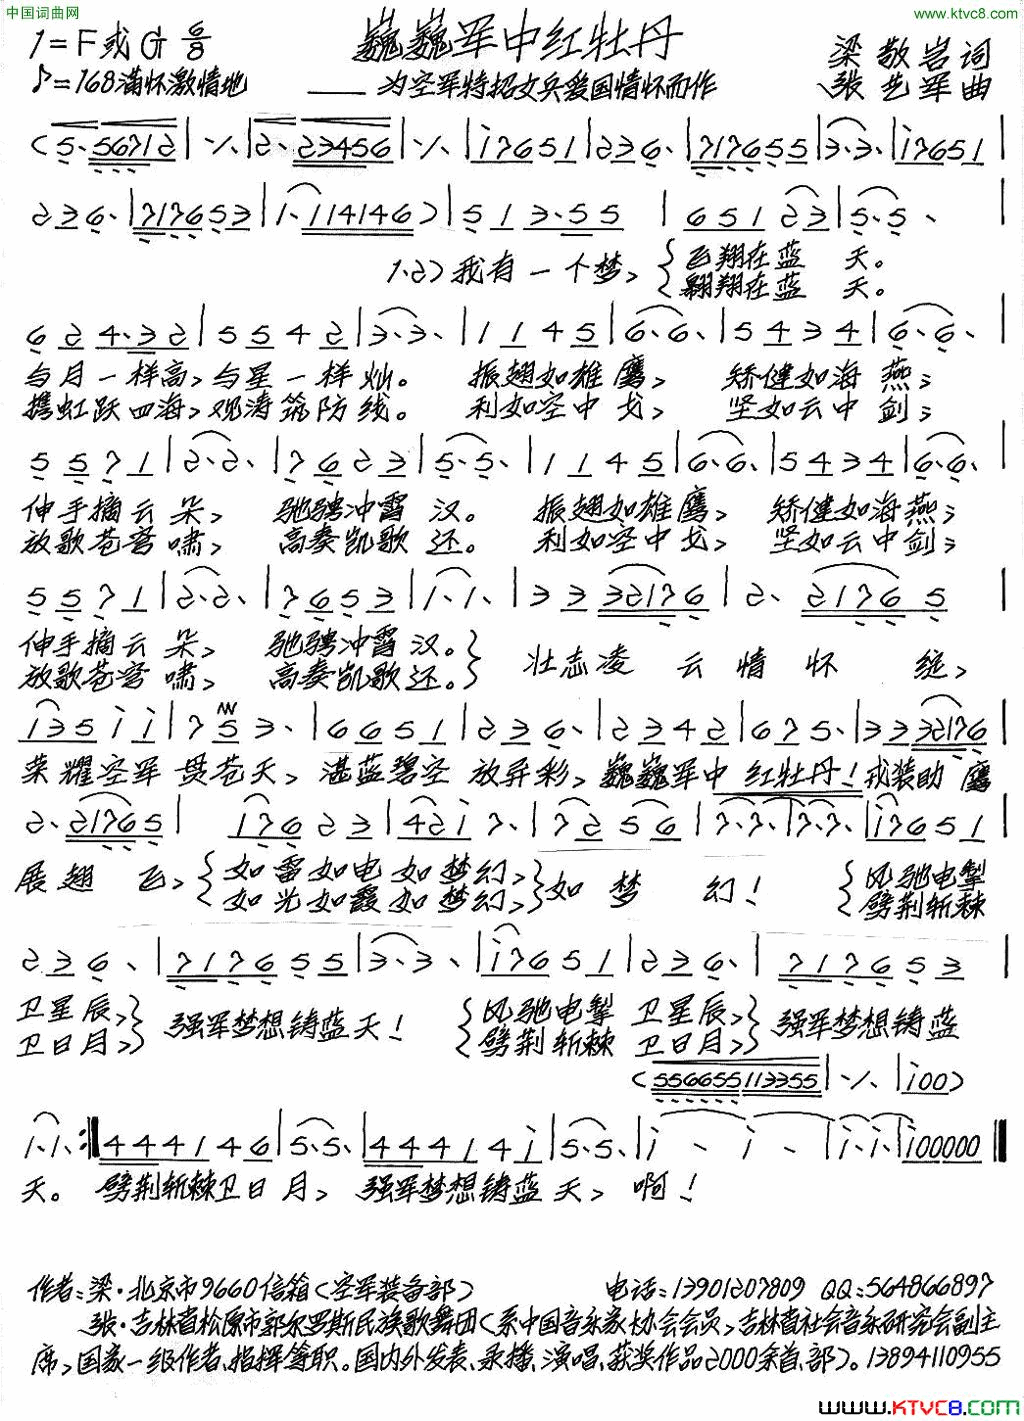 中国词曲网
www.ktvc8.com
1=F或G 6/8
巍巍军中红牡丹
梁敬岩词
♪=168满怀激情地
——为空军特招文兵爱国情怀而作
张艺军曲
(5·56712|·/·|2·23456|·/·|i7651|236·|717655|3·3·|i7651|
236·|717653|1·114146)|513·55|65123|5·5·|
1.2)我有一个梦,{飞翔在蓝天。
翱翔在蓝天。
624·32|5542|3·3·|1145|6·6·|5434|6·6·|
与月一样高,与星一样灿。振翅如雄鹰,矫健如海燕;
携虹跃四海,观涛筑防线。利如空中戈,坚如云中剑;
5571|2·2·|7623|5·5·|1145|6·6·|5434|6·6·|
伸手摘云朵,驰骋冲霄汉。振翅如雄鹰,矫健如海燕;
放歌苍穹啸,高奏凯歌还。利如空中戈,坚如云中剑;
5571|2·2·|7653|1·1·|3332176|2·21765|
伸手摘云朵,驰骋冲霄汉。}壮志凌云情怀绽,
放歌苍穹啸,高奏凯歌还。
i35ii|753·|6651|236·|2342|675·|3332176|
荣耀空军贯苍天,湛蓝碧空放异彩,巍巍军中红牡丹!戎装助鹰
2·21765|17623|42i7·|7256|7·7·|7·7·|i7651|
展翅飞,{如雷如电如梦幻,}如梦幻!{风驰电掣
如光如霞如梦幻, 劈荆斩棘
236·|717655|3·3·|i7651|236·|717653|
卫星辰,}强军梦想铸蓝天!{风驰电掣卫星辰,}强军梦想铸蓝
卫日月, 劈荆斩棘卫日月,
(556655113355|·/·|i00)
1·1·:‖444146|5·5·|44414i|5·5·|i·i·|i·i·|i00000‖
天。劈荆斩棘卫日月,强军梦想铸蓝天,啊!
作者:梁·北京市9660信箱(空军装备部)
电话:13901207809 QQ:564866897
张·吉林省松原市郭尔罗斯民族歌舞团(系中国音乐家协会会员,吉林省社会音乐研究会副主
席,国家一级作者、指挥等职。国内外发表、录播、演唱、获奖作品2000余首、部)。13894110955
www.KTVC8.com